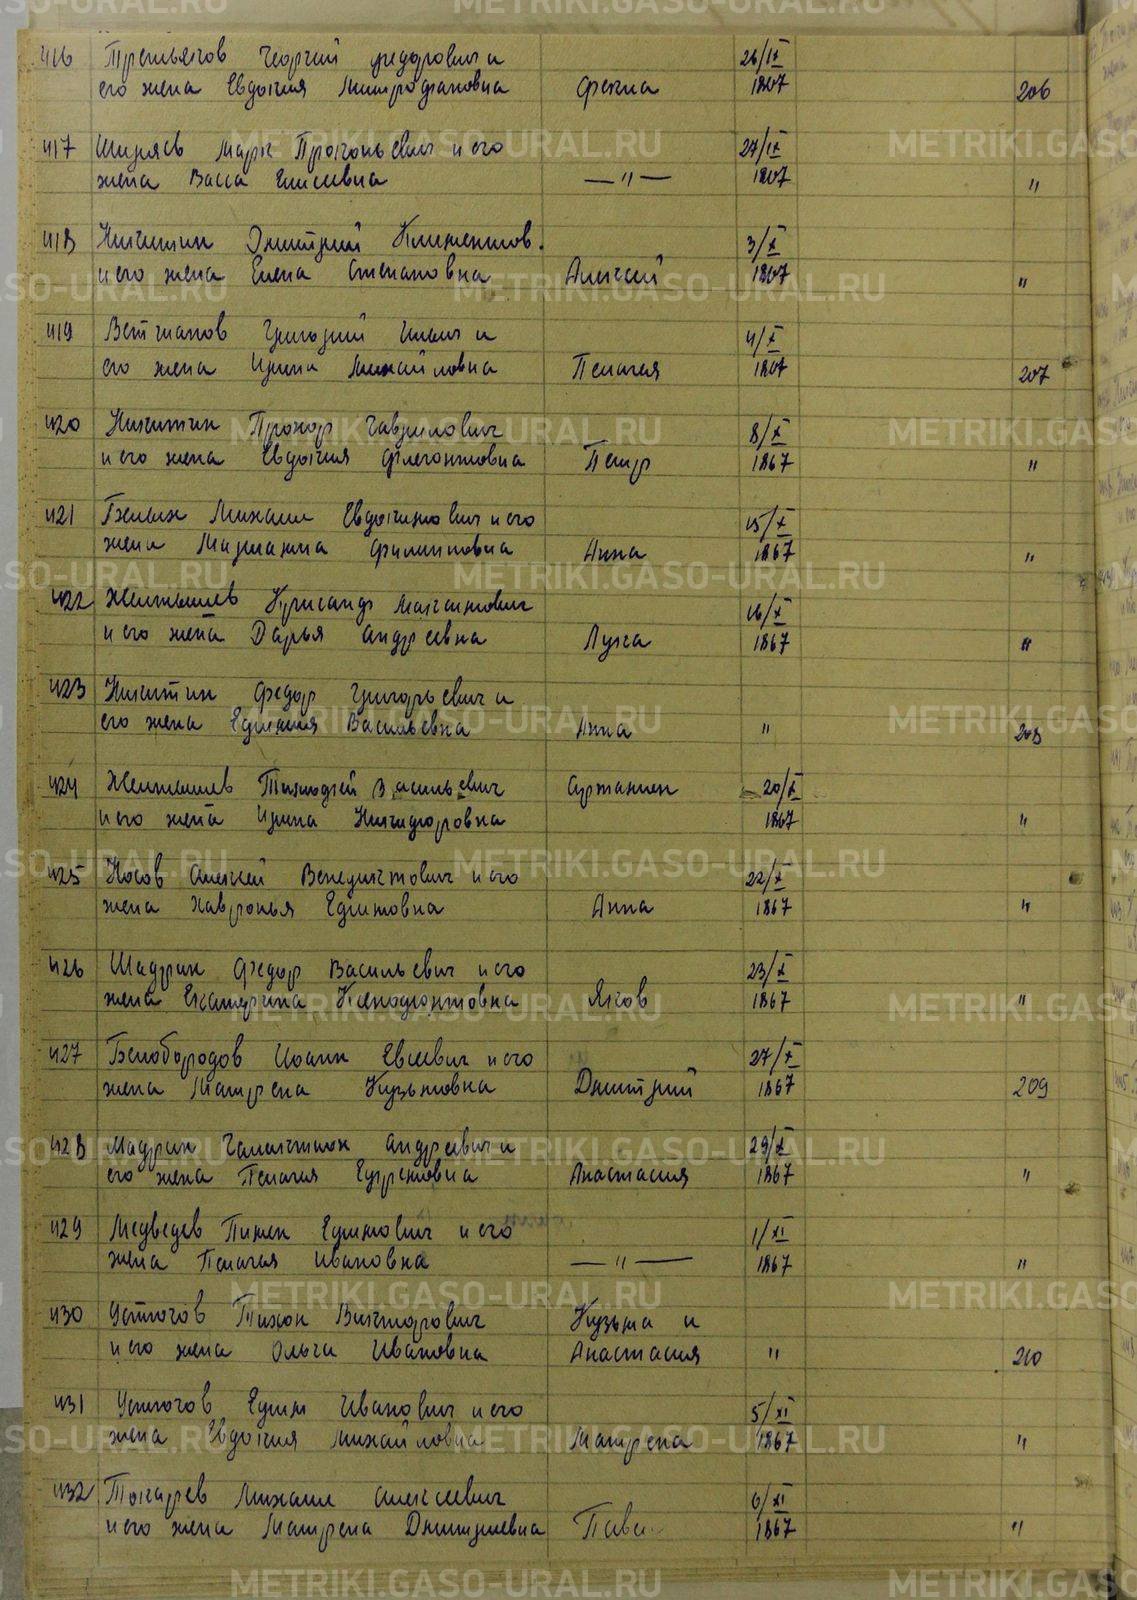 METRIKI.GASO-URAL.RU
416 Третьяков Георгий Федорович и 26/IX
его жена Евдокия Митрофановна Фекла 1867 206
417 Ширяев Марк Прокопьевич и его 27/IX
жена Васса Елисеевна —"— 1867 "
418 Никитин Дмитрий Климентов. 3/X
и его жена Елена Степановна Алексей 1867 "
419 Григорий Ильич и 4/X
его жена Ирина Михайловна Пелагея 1867 207
420 Никитин Прохор Гаврилович 8/X
и его жена Евдокия Флегонтовна Петр 1867 "
421 Белых Михаил Евдокимович и его 15/X
жена Марианна Филипповна Анна 1867 "
422 Желтышев Крисанф Максимович 16/X
и его жена Дарья Андреевна Лука 1867 "
423 Никитин Федор Григорьевич и
его жена Васильевна Анна " 208
424 Желтышев Тимофей Васильевич 20/X
и его жена Ирина Никифоровна 1867 "
425 Носов Алексей Венедиктович и его 22/X
жена Хавронья Ефимовна Анна 1867 "
426 Шадрин Федор Васильевич и его 23/X
жена Екатерина Ксенофонтовна Яков 1867 "
427 Белобородов Иоанн Евсеевич и его 27/X
жена Матрена Кузьмовна Дмитрий 1867 209
428 Галактион Андреевич и 29/X
его жена Пелагея Ефремовна Анастасия 1867 "
429 Медведев Пимен Ефимович и его 1/XI
жена Пелагея Ивановна —"— 1867 "
430 Устюгов Тихон Викторович Кузьма и
и его жена Ольга Ивановна Анастасия " 210
431 Устюгов Ефим Иванович и его 5/XI
жена Евдокия Михайловна Матрена 1867 "
432 Токарев Михаил Алексеевич 6/XI
и его жена Матрена Дмитриевна 1867 "